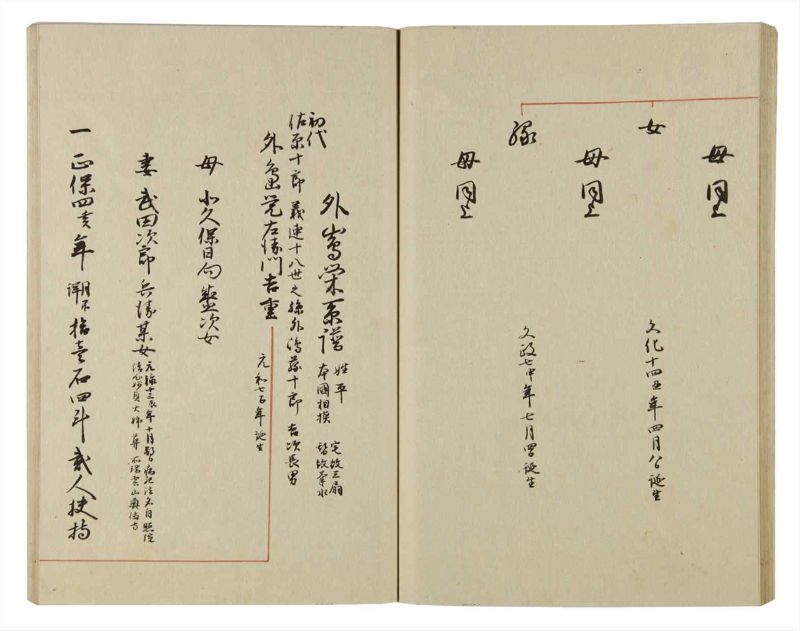 母里
女
文化十四丑年四月
誕生
母里
縁
文政七申年七月
誕生
母里
外嶌栄系譜
姓平
本國相模
定紋三扇
替紋
初代
佐原十郎義連十八世之孫外嶌藤十郎吉次長男
外嶌覚左衛門吉重
元和七
年誕生
母
小久保日向
次女
妻
武田次郎兵衛某女
元禄十三辰年十月
病死法名自照院
大姉葬
瑞雲山興徳寺
一 正保四亥年
拾壹石四斗貳人扶持